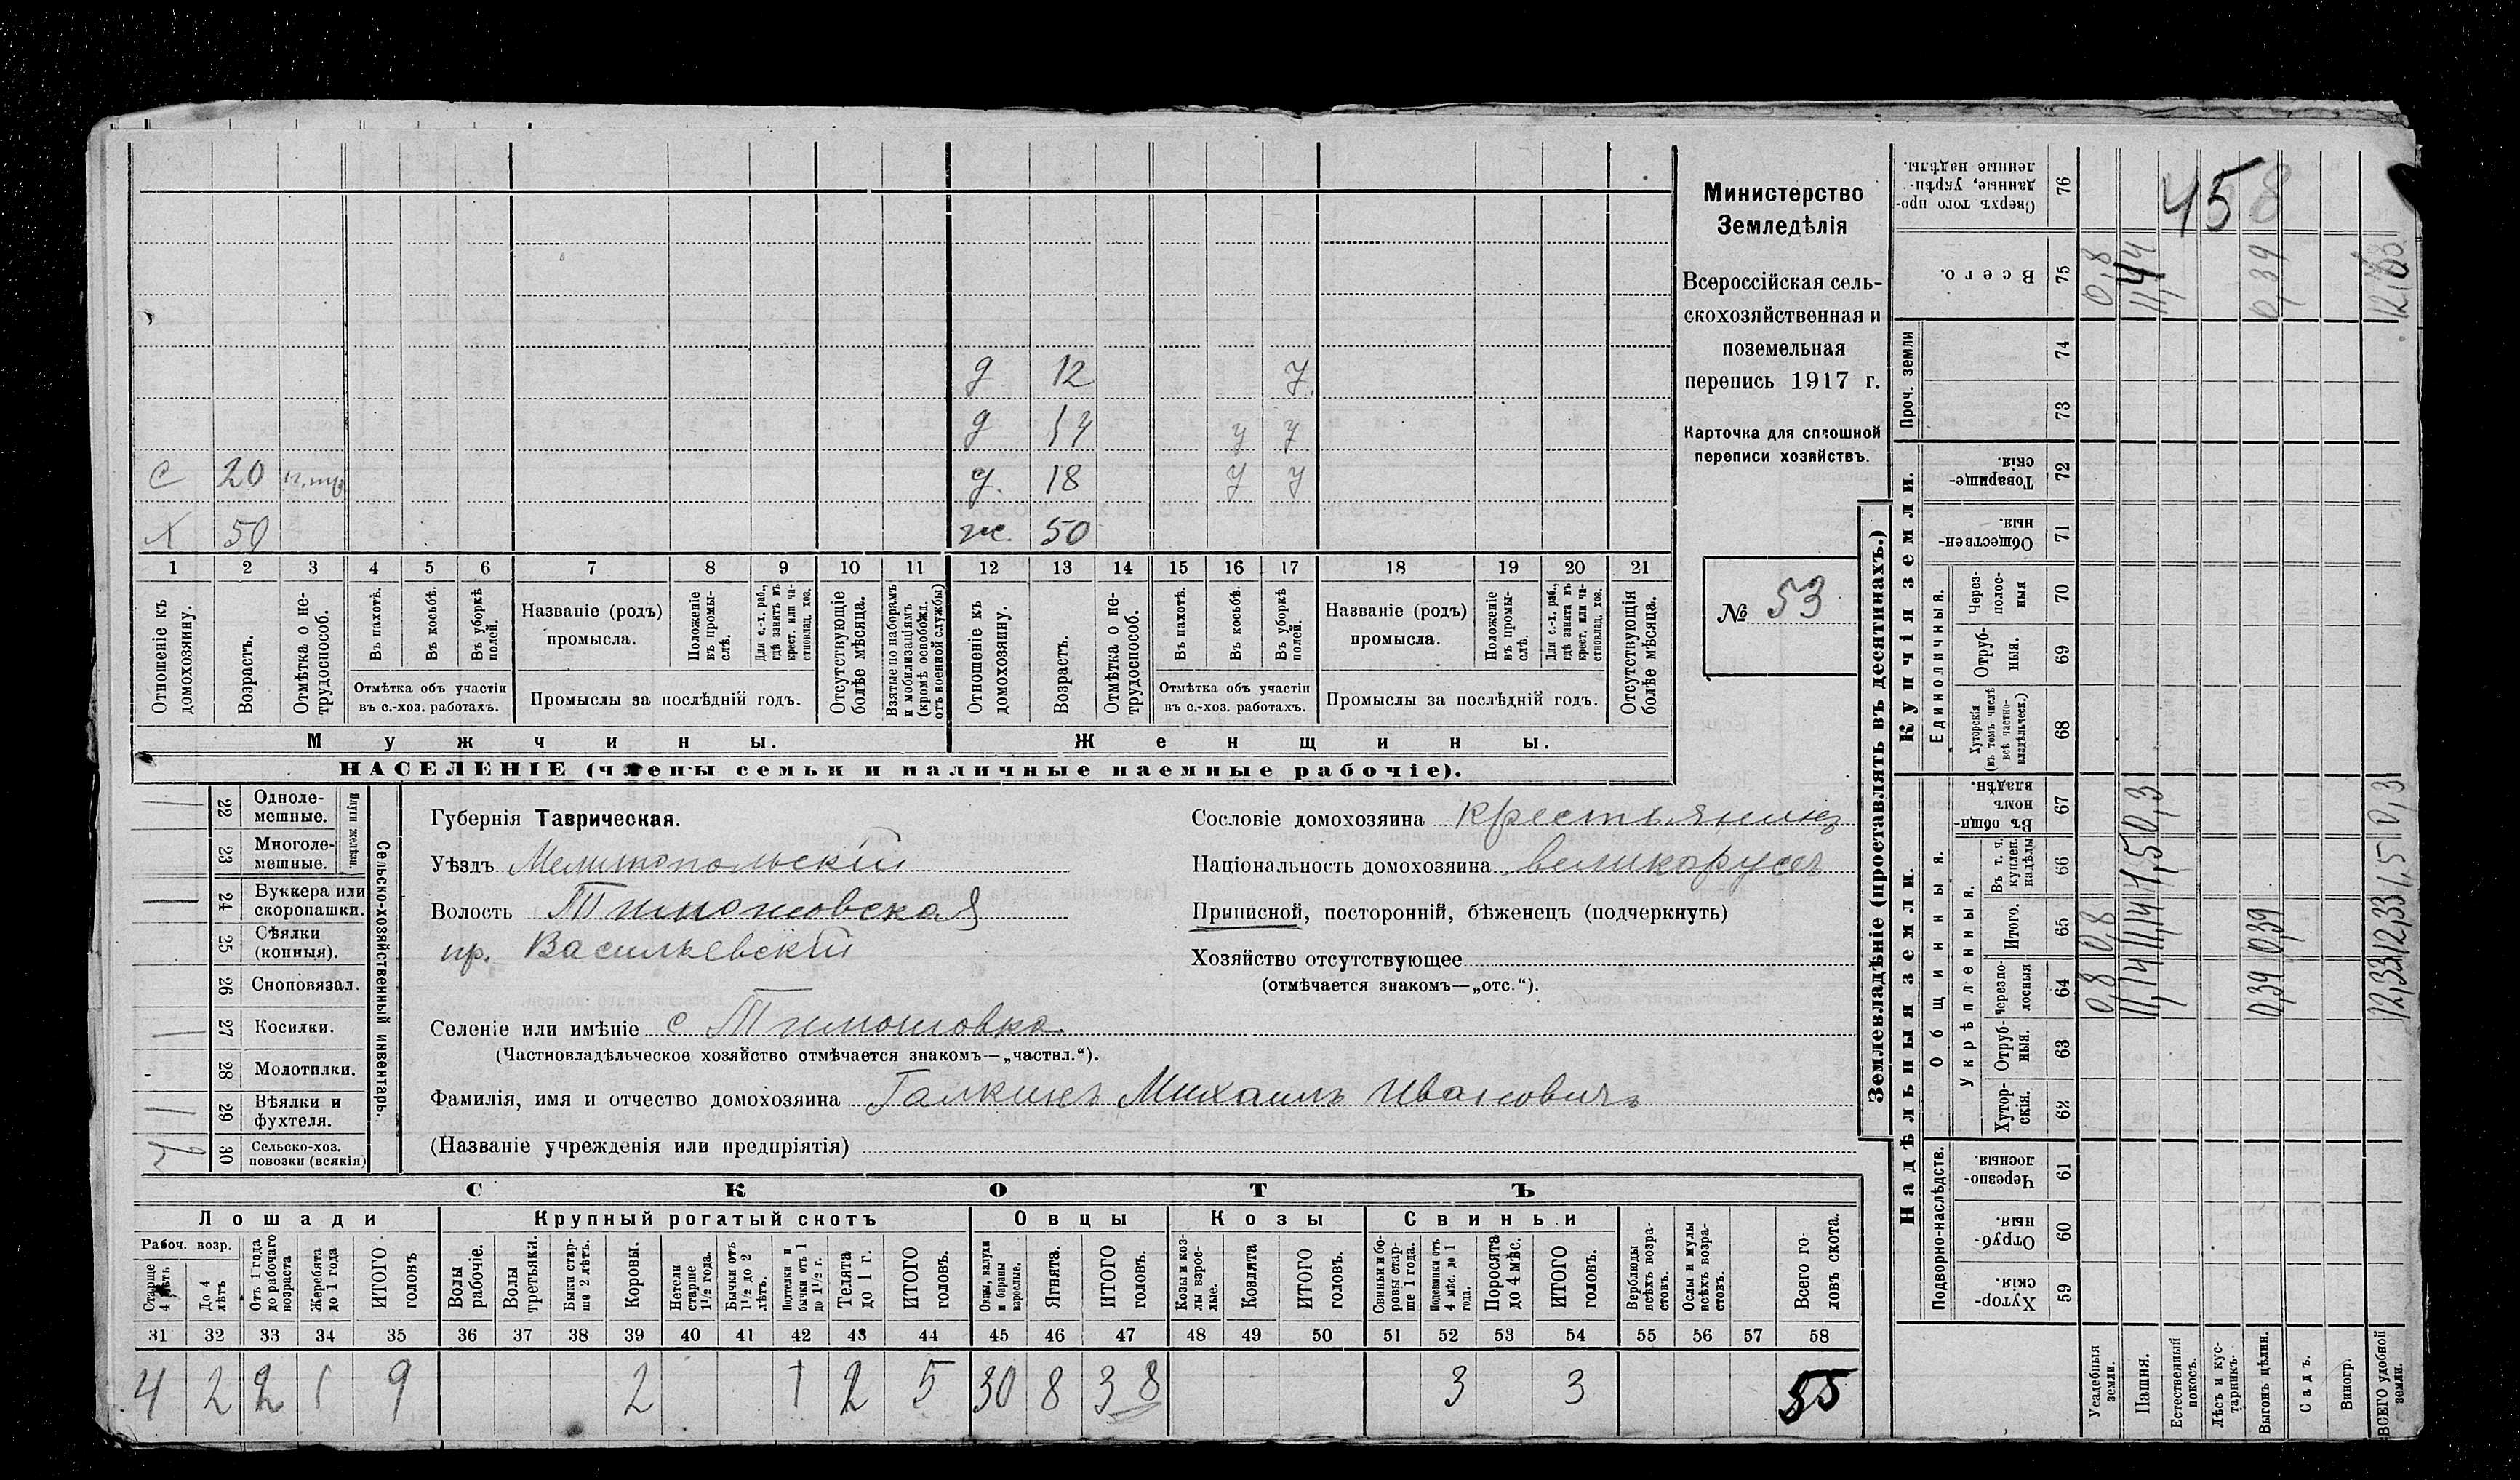 Министерство
Земледѣлія
Всероссійская сель-
скохозяйственная и
поземельная
перепись 1917 г.
Карточка для сплошной
переписи хозяйствъ.
№ 53
458
д 12 у.
д 14 у у
С 20 д. 18 у у
Х 50 ж. 50
1 2 3 4 5 6 7 8 9 10 11 12 13 14 15 16 17 18 19 20 21
Отношеніе къ домохозяину.
Возрастъ.
Отмѣтка о не-трудоспособ.
Въ пахотѣ.
Въ косьбѣ.
Въ уборкѣ полей.
Отмѣтка объ участіи
въ с.-хоз. работахъ.
Названіе (родъ)
промысла.
Положеніе въ промы-слѣ.
Для с.-х. раб., гдѣ занятъ въ крест. или ча-стновлад. хоз.
Промыслы за послѣдній годъ.
Отсутствующіе болѣе мѣсяца.
Взятые по наборамъ и мобилизаціямъ (кромѣ освобожд. отъ военной службы)
Отношеніе къ домохозяину.
Возрастъ.
Отмѣтка о не-трудоспособ.
Въ пахотѣ.
Въ косьбѣ.
Въ уборкѣ полей.
Отмѣтка объ участіи
въ с.-хоз. работахъ.
Названіе (родъ)
промысла.
Положеніе въ промы-слѣ.
Для с.-х. раб., гдѣ занята въ крест. или ча-стновлад. хоз.
Промыслы за послѣдній годъ.
Отсутствующія болѣе мѣсяца.
Мужчины. Женщины.
НАСЕЛЕНІЕ (члены семьи и наличные наемные рабочіе).
Сельско-хозяйственный инвентарь.
Плуги желѣзн.
22 Одноле-мешные.
23 Многоле-мешные.
24 Буккера или скоропашки.
25 Сѣялки (конныя).
26 Сноповязал.
27 Косилки.
28 Молотилки.
29 Вѣялки и фухтеля.
30 Сельско-хоз. повозки (всякія)
Губернія Таврическая.
Уѣздъ Мелитопольскій
Волость Тимошовская
пр. Васильевскій
Селеніе или имѣніе с Тимошовка.
(Частновладѣльческое хозяйство отмѣчается знакомъ—„частвл.“).
Фамилія, имя и отчество домохозяина Галкинъ Михаилъ Ивановичъ
(Названіе учрежденія или предпріятія)
Сословіе домохозяина крестьянинъ
Національность домохозяина великорусъ
Приписной, посторонній, бѣженецъ (подчеркнуть)
Хозяйство отсутствующее
(отмѣчается знакомъ—„отс.“).
СКОТЪ
Лошади Крупный рогатый скотъ Овцы Козы Свиньи
Рабоч. возр.
Старше 4 лѣтъ
До 4 лѣтъ
Отъ 1 года до рабочаго возраста
Жеребята до 1 года
ИТОГО головъ
Волы рабочіе.
Волы третьяки.
Быки стар-ше 2 лѣтъ.
Коровы.
Нетели старше 1½ года.
Бычки отъ 1½ до 2 лѣтъ.
Подтелки и бычки отъ 1 до 1½ г.
Телята до 1 г.
ИТОГО головъ.
Овцы, валухи и бараны взрослые.
Ягнята.
ИТОГО головъ.
Козы и коз-лы взрос-лые.
Козлята
ИТОГО головъ.
Свиньи и бо-ровы стар-ше 1 года.
Подсвинки отъ 4 мѣс. до 1 года.
Поросята до 4 мѣс.
ИТОГО головъ.
Верблюды всѣхъ возра-стовъ.
Ослы и мулы всѣхъ возра-стовъ.
Всего го-ловъ скота.
31 32 33 34 35 36 37 38 39 40 41 42 43 44 45 46 47 48 49 50 51 52 53 54 55 56 57 58
4 2 2 1 9 2 1 2 5 30 8 38 3 3 55
Землевладѣніе (проставлять въ десятинахъ.)
Купчія земли.
Надѣльныя земли.
Сверхъ того про-данные, укрѣп-ленные надѣлы. 76
Всего. 75 0,8 11,44 0,39
Проч. земли 74
73
Товарище-скія. 72
Обществен-ныя. 71
Единоличныя.
Через-полос-ныя 70
Отруб-ныя. 69
Хуторскія (въ томъ числѣ всѣ частно-владѣльческ.) 68
Общинныя.
Въ общи номъ владѣн. 67 0,3 0,3
Укрѣпленныя.
Въ т. ч. куплен. надѣлы 66 1,5 1,5
Итого. 65 0,8 11,14 0,39 12,33
Черезпо-лосныя 64 0,8 11,14 0,39 12,33
Отруб-ныя. 63
Хутор-скія. 62
Подворно-наслѣдств.
Черезпо-лосныя. 61
Отруб-ныя. 60
Хутор-скія. 59
Усадебныя земли.
Пашня.
Естественный покосъ.
Лѣсъ и кус-тарникъ.
Выгонъ цѣлин.
Садъ.
Виногр.
ВСЕГО удобной земли.